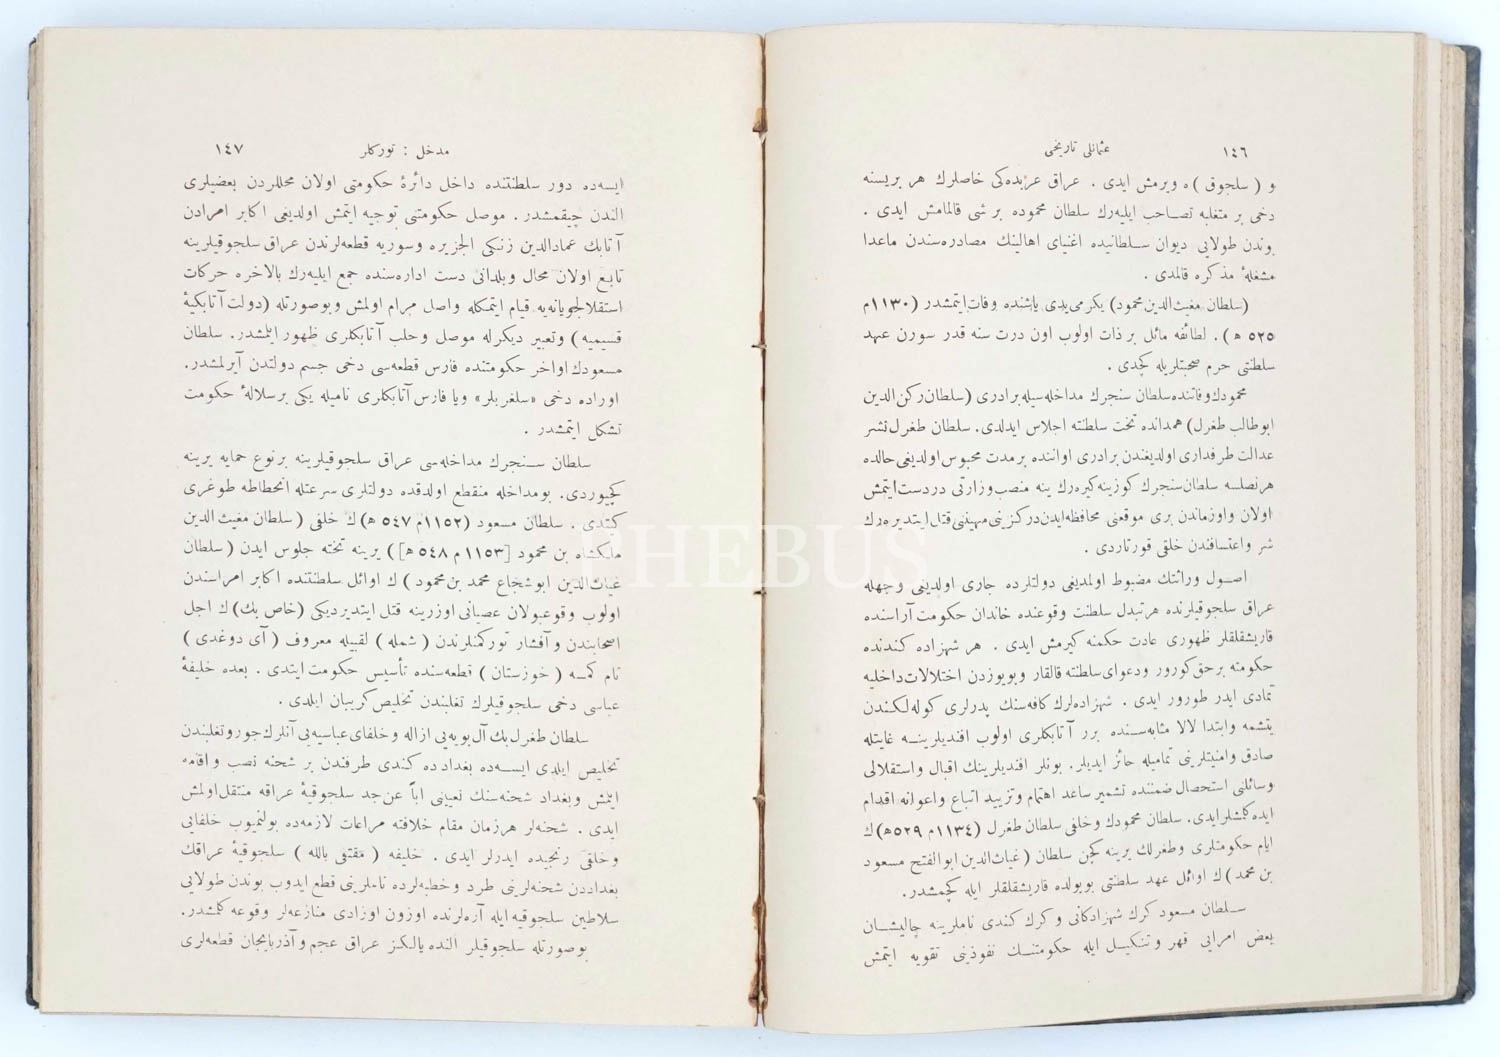 ١٤٦
عثمانلی تاریخی
و ( سلجوق ) ه ویرمش ایدی . عراق عربده‌کی خاصلرك هر بریسنه
دخی بر متغلبه تصاحب ایلیه‌رك سلطان محموده بر شی قالمامش ایدی .
بوندن طولایی دیوان سلطانیده اغنیای اهالینك مصادره‌سندن ماعدا
مشغلهٔ مذکره قالمدی .
(سلطان مغیث‌الدین محمود) یکرمی‌یدی یاشنده وفات‌ایتمشدر (١١٣٠م
٥٢٥ ه ) . لطائفه مائل بر ذات اولوب اون درت سنه قدر سورن عهد
سلطنتی حرم صحبتلریله کچدی .
محمودك وفاتنده سلطان سنجرك مداخله‌سیله برادری (سلطان رکن الدین
ابوطالب طغرل) همدانده تخت سلطنته اجلاس ایدلدی. سلطان طغرل نشر
عدالت طرفداری اولدیغندن برادری اواننده بر مدت محبوس اولدیغی حالده
هرنصلسه سلطان سنجرك کوزینه کیره‌رك ینه منصب وزارتی دردست ایتمش
اولان و اوزماندن بری موقعنی محافظه ایدن درکزینی مهیننی قتل ایتدیره‌رك
شر و اعتسافندن خلقی قورتاردی .
اصول وراثتك مضبوط اولمدیغی دولتلرده جاری اولدیغی وجهله
عراق سلجوقیلرنده هر تبدل سلطنت وقوعنده خاندان حکومت آراسنده
قاریشقلقلر ظهوری عادت حکمنه کیرمش ایدی . هر شهزاده کندنده
حکومته بر حق کورور و دعوای سلطنته قالقار و بویوزدن اختلالات داخلیه
تمادی ایدر طورور ایدی . شهزاده‌لرك کافه‌سنك پدرلری کوله‌لکندن
یتشمه و ابتدا لالا مثابه‌سنده برر آتابکلری اولوب افندیلرینه غایتله
صادق و امنیتلرینی تمامیله حائز ایدیلر. بونلر افندیلرینك اقبال و استقلالی
وسائلنی استحصال ضمننده تشمیر ساعد اهتمام و تزیید اتباع و اعوانه اقدام
ایده کلمشلر ایدی. سلطان محمودك و خلفی سلطان طغرل (١١٣٤م ٥٢٩ه) ك
ایام حکومتلری و طغرلك یرینه کچن سلطان (غیاث‌الدین ابوالفتح مسعود
بن محمد) ك اوائل عهد سلطنتی بویولده قاریشقلقلر ایله کچمشدر.
سلطان مسعود کرك شهزادکانی و کرك کندی ناملرینه چالیشان
بعض امرایی قهر و تنکیل ایله حکومتنك نفوذینی تقویه ایتمش
مدخل : تورکلر
١٤٧
ایسه‌ده دور سلطنتنده داخل دائرهٔ حکومتی اولان محللردن بعضیلری
الندن چیقمشدر . موصل حکومتنی توجیه ایتمش اولدیغی اکابر امرادن
آتابك عمادالدین زنکی الجزیره و سوریه قطعه‌لرندن عراق سلجوقیلرینه
تابع اولان محال و بلدانی دست اداره‌سنده جمع ایلیه‌رك بالاخره حرکات
استقلالجویانه‌یه قیام ایتمکله واصل مرام اولمش و بوصورتله (دولت آتابکیهٔ
قسیمیه) و تعبیر دیکرله موصل و حلب آتابکلری ظهور ایلمشدر. سلطان
مسعودك اواخر حکومتنده فارس قطعه‌سی دخی جسم دولتدن آیرلمشدر.
اوراده دخی «سلغریلر» ویا فارس آتابکلری نامیله یکی بر سلالهٔ حکومت
تشکل ایتمشدر .
سلطان سنجرك مداخله‌سی عراق سلجوقیلرینه بر نوع حمایه یرینه
کچیوردی. بومداخله منقطع اولدقده دولتلری سرعتله انحطاطه طوغری
کتدی . سلطان مسعود (١١٥٢م ٥٤٧ ه) ك خلفی (سلطان مغیث الدین
ملکشاه بن محمود [١١٥٣م ٥٤٨ ه]) یرینه تخته جلوس ایدن (سلطان
غیاث‌الدین ابوشجاع محمد بن محمود) ك اوائل سلطنتنده اکابر امراسندن
اولوب وقوعبولان عصیانی اوزرینه قتل ایتدیردیکی (خاص بك) ك اجل
اصحابندن و آفشار تورکمنلرندن ( شمله ) لقبیله معروف ( آی دوغدی )
نام کمسه ( خوزستان ) قطعه‌سنده تأسیس حکومت ایتدی . بعده خلیفهٔ
عباسی دخی سلجوقیلرك تغلبندن تخلیص کریبان ایلدی .
سلطان طغرل بك آل بویه‌یی ازاله و خلفای عباسیه‌یی آنلرك جور و تغلبندن
تخلیص ایلدی ایسه‌ده بغدادده کندی طرفندن بر شحنه نصب و اقامه
ایتمش و بغداد شحنه‌سنك تعیینی اباً عن جد سلجوقیهٔ عراقه منتقل اولمش
ایدی . شحنه‌لر هر زمان مقام خلافته مراعات لازمه‌ده بولنمیوب خلفایی
و خلقی رنجیده ایدرلر ایدی . خلیفه ( مقتفی بالله ) سلجوقیهٔ عراقك
بغداددن شحنه‌لرینی طرد و خطبه‌لرده ناملرینی قطع ایدوب بوندن طولایی
سلاطین سلجوقیه ایله آره‌لرنده اوزون اوزادی منازعه‌لر وقوعه کلمشدر.
بوصورتله سلجوقیلر النده یالکز عراق عجم و آذربایجان قطعه‌لری
PHEBUS